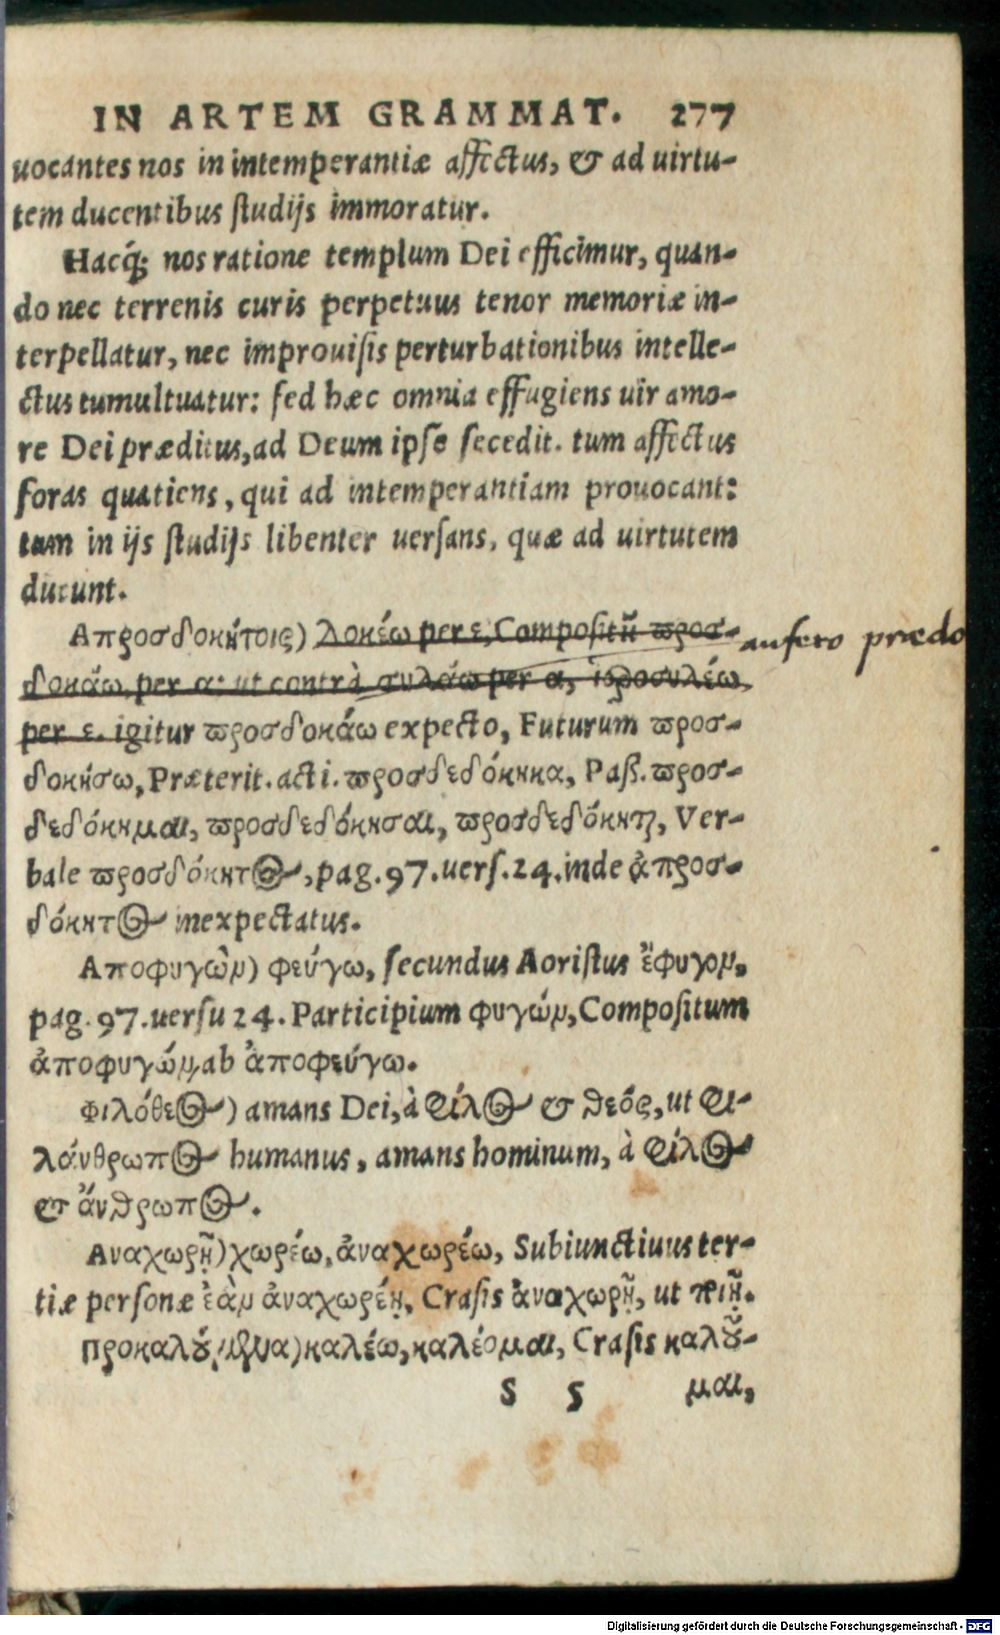 IN ARTEM GRAMMAT. 277
uocantes nos in intemperantiæ affectus, & ad uirtu-
tem ducentibus studijs immoratur.
Hacq́; nos ratione templum Dei efficimur, quan-
do nec terrenis curis perpetuus tenor memoriæ in-
terpellatur, nec improuisis perturbationibus intelle-
ctus tumultuatur: sed hæc omnia effugiens uir amo-
re Dei præditus, ad Deum ipse secedit. tum affectus
foras quatiens, qui ad intemperantiam prouocant:
tum in ijs studijs libenter uersans, quæ ad uirtutem
ducunt.
Απροσδοκήτοις) λοκέω per ε, Compositũ προσ- aufero prædo
δοκάω, per α: ut contrà συλάω per α, ἱεροσυλέω,
per ε. igitur προσδοκάω expecto, Futurum προσ-
δοκήσω, Præterit. acti. προσδεδόκηκα, Paß. προσ-
δεδόκημαι, προσδεδόκησαι, προσδεδόκηται, Ver-
bale προσδόκητος, pag. 97. uers. 24. inde ἀπροσ-
δόκητος inexpectatus.
Αποφυγὼν) φεύγω, secundus Aoristus ἔφυγον,
pag. 97. uersu 24. Participium φυγών, Compositum
ἀποφυγών, ab ἀποφεύγω.
Φιλόθεος) amans Dei, à φίλος & θεός, ut φι-
λάνθρωπος humanus, amans hominum, à φίλος
& ἄνθρωπος.
Αναχωρῇ) χωρέω, ἀναχωρέω, Subiunctiuus ter-
tiæ personæ ἐὰν ἀναχωρέῃ, Crasis ἀναχωρῇ, ut ποιῇ.
Προκαλούμενα) καλέω, καλέομαι, Crasis καλοῦ-
S 5 μαι,
Digitalisierung gefördert durch die Deutsche Forschungsgemeinschaft - DFG